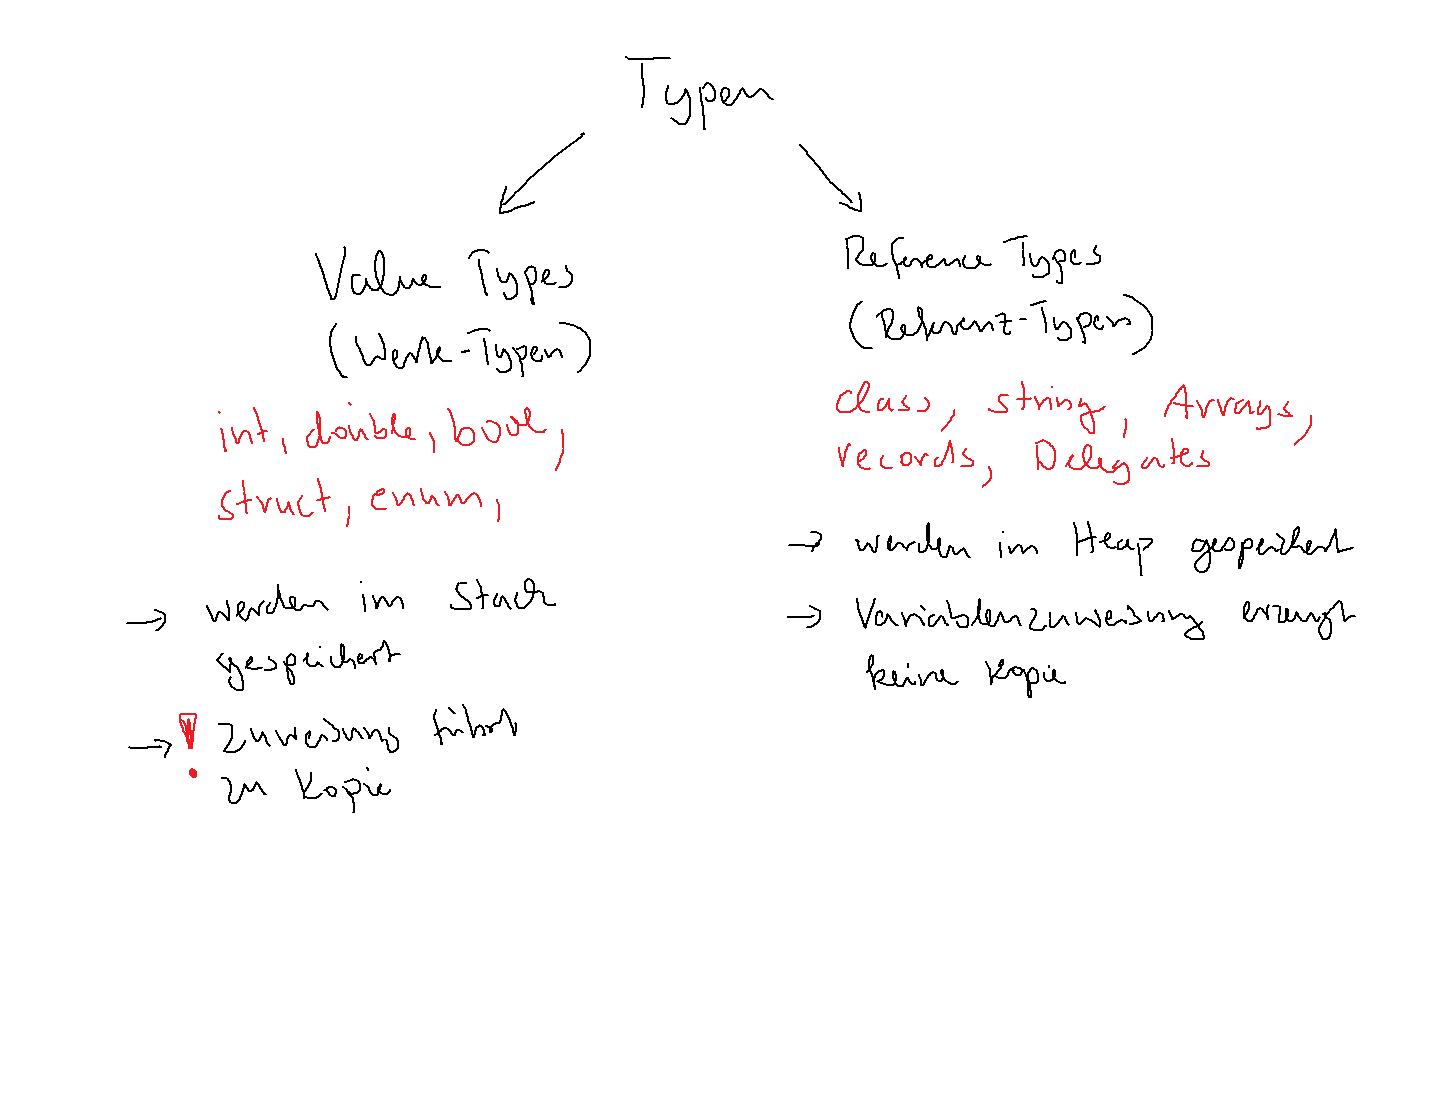 Typen
Value Types
(Werte-Typen)
int, double, bool,
struct, enum,
→ werden im Stack
gespeichert
→ ! Zuweisung führt
zu Kopie
Reference Types
(Referenz-Typen)
class, string, Arrays,
records, Delegates
→ werden im Heap gespeichert
→ Variablenzuweisung erzeugt
keine Kopie